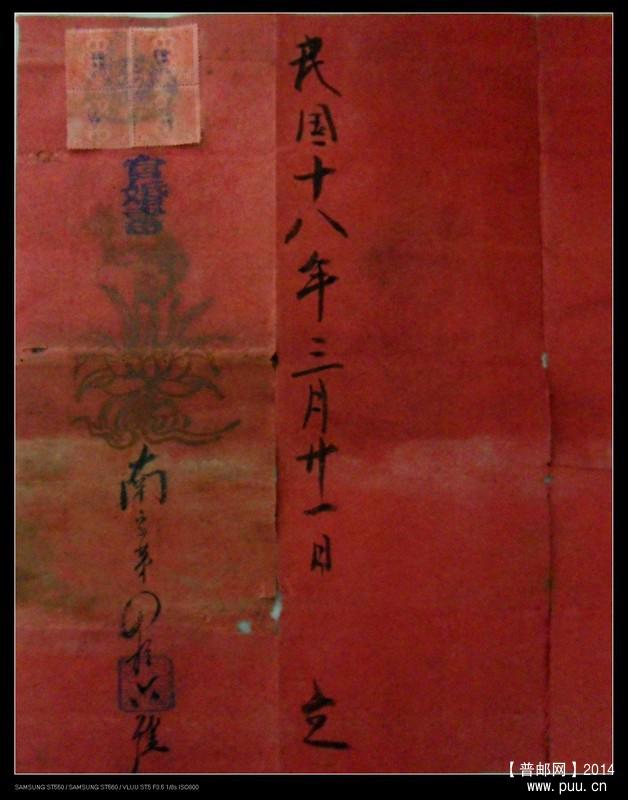 民国十八年三月廿一日 立
官婚書
南字第四拾六號
SAMSUNG ST550 / SAMSUNG ST560 / VLUU ST5 F3.5 1/8s ISO800
【普邮网】2014
www.puu.cn